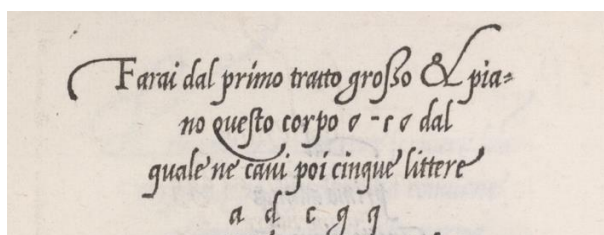 Farai dal primo tratto grosso & pia-
no questo corpo o - c o dal
quale ne cavi poi cinque littere
a d c g q